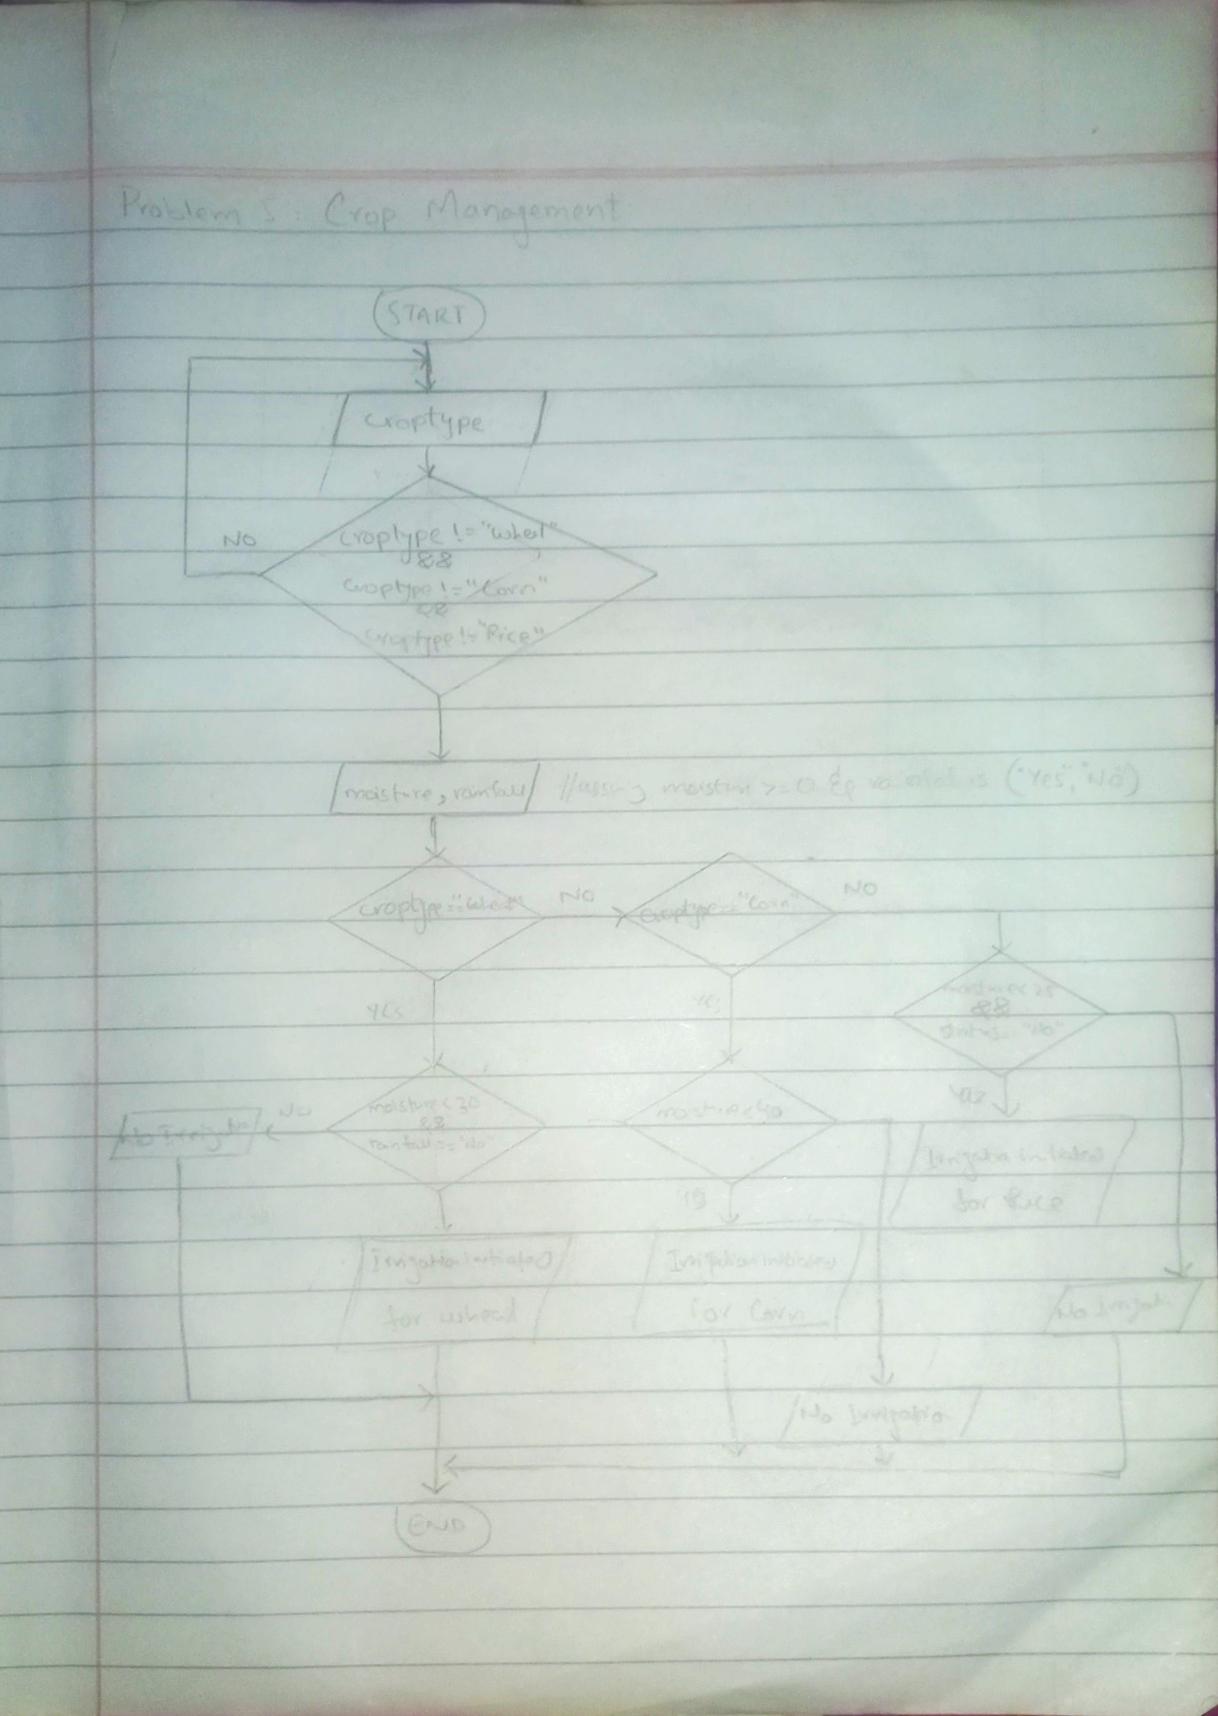 Problem 5: Crop Management
START
croptype
NO
croptype != "Wheat"
&&
croptype != "Corn"
&&
croptype != "Rice"
moisture, rainfall
// moisture >= 0 is ("Yes", "No")
croptype == "Wheat"
NO
croptype == "Corn"
NO
Yes
Yes
moisture < 25
&&
"No"
Yes
No Irrigation
No
moisture < 30
&&
rainfall == "No"
moisture < 40
Irrigation initiated
for Rice
Yes
Irrigation initiated
for wheat
Irrigation initiated
for Corn
No Irrigati
No Irrigation
END